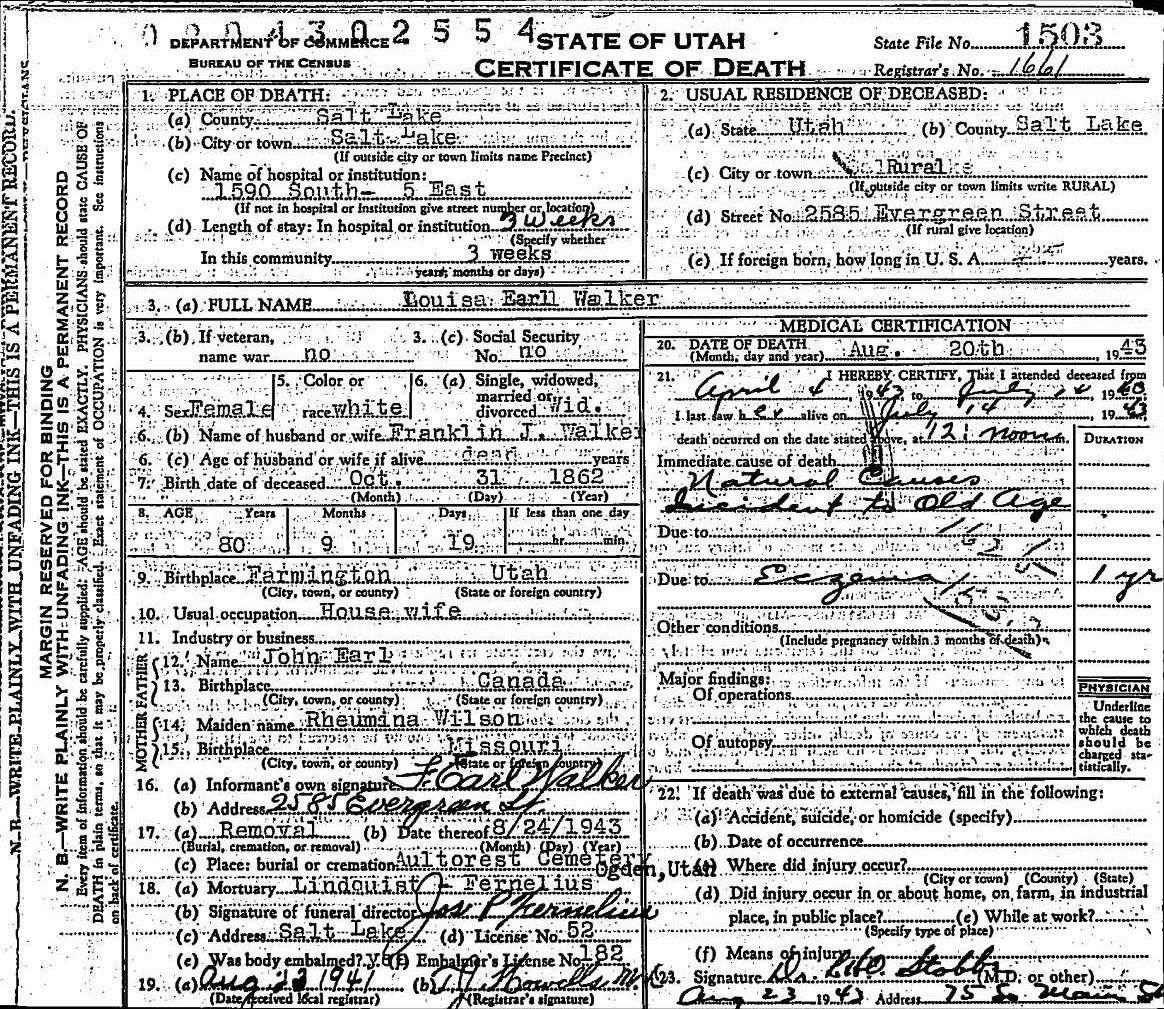 2 5 5 4
DEPARTMENT OF COMMERCE
BUREAU OF THE CENSUS
STATE OF UTAH
CERTIFICATE OF DEATH
State File No. 1503
Registrar's No. 1661
N. B.—WRITE PLAINLY WITH UNFADING INK—THIS IS A PERMANENT RECORD.
MARGIN RESERVED FOR BINDING
N. B.—WRITE PLAINLY WITH UNFADING INK—THIS IS A PERMANENT RECORD
Every item of information should be carefully supplied. AGE should be stated EXACTLY. PHYSICIANS should state CAUSE OF
DEATH in plain terms, so that it may be properly classified. Exact statement of OCCUPATION is very important. See instructions
on back of certificate.
1. PLACE OF DEATH:
(a) County Salt Lake
(b) City or town Salt Lake
(If outside city or town limits name Precinct)
(c) Name of hospital or institution:
1590 South- 5 East
(If not in hospital or institution give street number or location)
(d) Length of stay: In hospital or institution 3 weeks
(Specify whether
In this community 3 weeks
years, months or days)
2. USUAL RESIDENCE OF DECEASED:
(a) State Utah (b) County Salt Lake
(c) City or town Rural
(If outside city or town limits write RURAL)
(d) Street No. 2585 Evergreen Street
(If rural give location)
(e) If foreign born, how long in U. S. A. years.
3. (a) FULL NAME Louisa Earll Walker
3. (b) If veteran,
name war no
3. (c) Social Security
No. no
4. Sex Female
5. Color or
race white
6. (a) Single, widowed,
married or
divorced Wid.
6. (b) Name of husband or wife Franklin J. Walker
6. (c) Age of husband or wife if alive dead years
7. Birth date of deceased Oct. 31 1862
(Month) (Day) (Year)
8. AGE Years Months Days If less than one day
80 9 19 hr. min.
9. Birthplace Farmington Utah
(City, town, or county) (State or foreign country)
10. Usual occupation House wife
11. Industry or business
FATHER
12. Name John Earl
13. Birthplace Canada
(City, town, or county) (State or foreign country)
MOTHER
14. Maiden name Rheumina Wilson
15. Birthplace Missouri
(City, town, or county) (State or foreign country)
16. (a) Informant's own signature F. Earl Walker
(b) Address 2585 Evergreen St
17. (a) Removal (b) Date thereof 8/24/1943
(Burial, cremation, or removal) (Month) (Day) (Year)
(c) Place: burial or cremation Aultorest Cemetery
Ogden, Utah
18. (a) Mortuary Lindquist - Fernelius
(b) Signature of funeral director Jos P Fernelius
(c) Address Salt Lake (d) License No. 52
(e) Was body embalmed? (f) Embalmer's License No. 182
19. (a) Aug 23 1941 (b) Howells
(Date received local registrar) (Registrar's signature)
MEDICAL CERTIFICATION
20. DATE OF DEATH
(Month, day and year) Aug. 20th, 1943
21. I HEREBY CERTIFY, That I attended deceased from
April 4, 1943 to July 14 19
I last saw her alive on July 14 1943
death occurred on the date stated above, at 12: noon m.
DURATION
Immediate cause of death
Natural Causes
Incident to Old Age
Due to
162
Due to Eczema 1 yr
Other conditions
(Include pregnancy within 3 months of death)
Major findings:
Of operations
Of autopsy
PHYSICIAN
Underline
the cause to
which death
should be
charged sta-
tistically.
22. If death was due to external causes, fill in the following:
(a) Accident, suicide, or homicide (specify)
(b) Date of occurrence
(c) Where did injury occur?
(City or town) (County) (State)
(d) Did injury occur in or about home, on farm, in industrial
place, in public place? (e) While at work?
(Specify type of place)
(f) Means of injury
23. Signature Dr. (M.D. or other)
Aug 23 1943 Address 75 So Main St